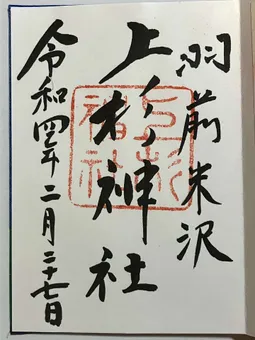 羽前米沢
上杉神社
上杉神社
令和四年二月二十七日